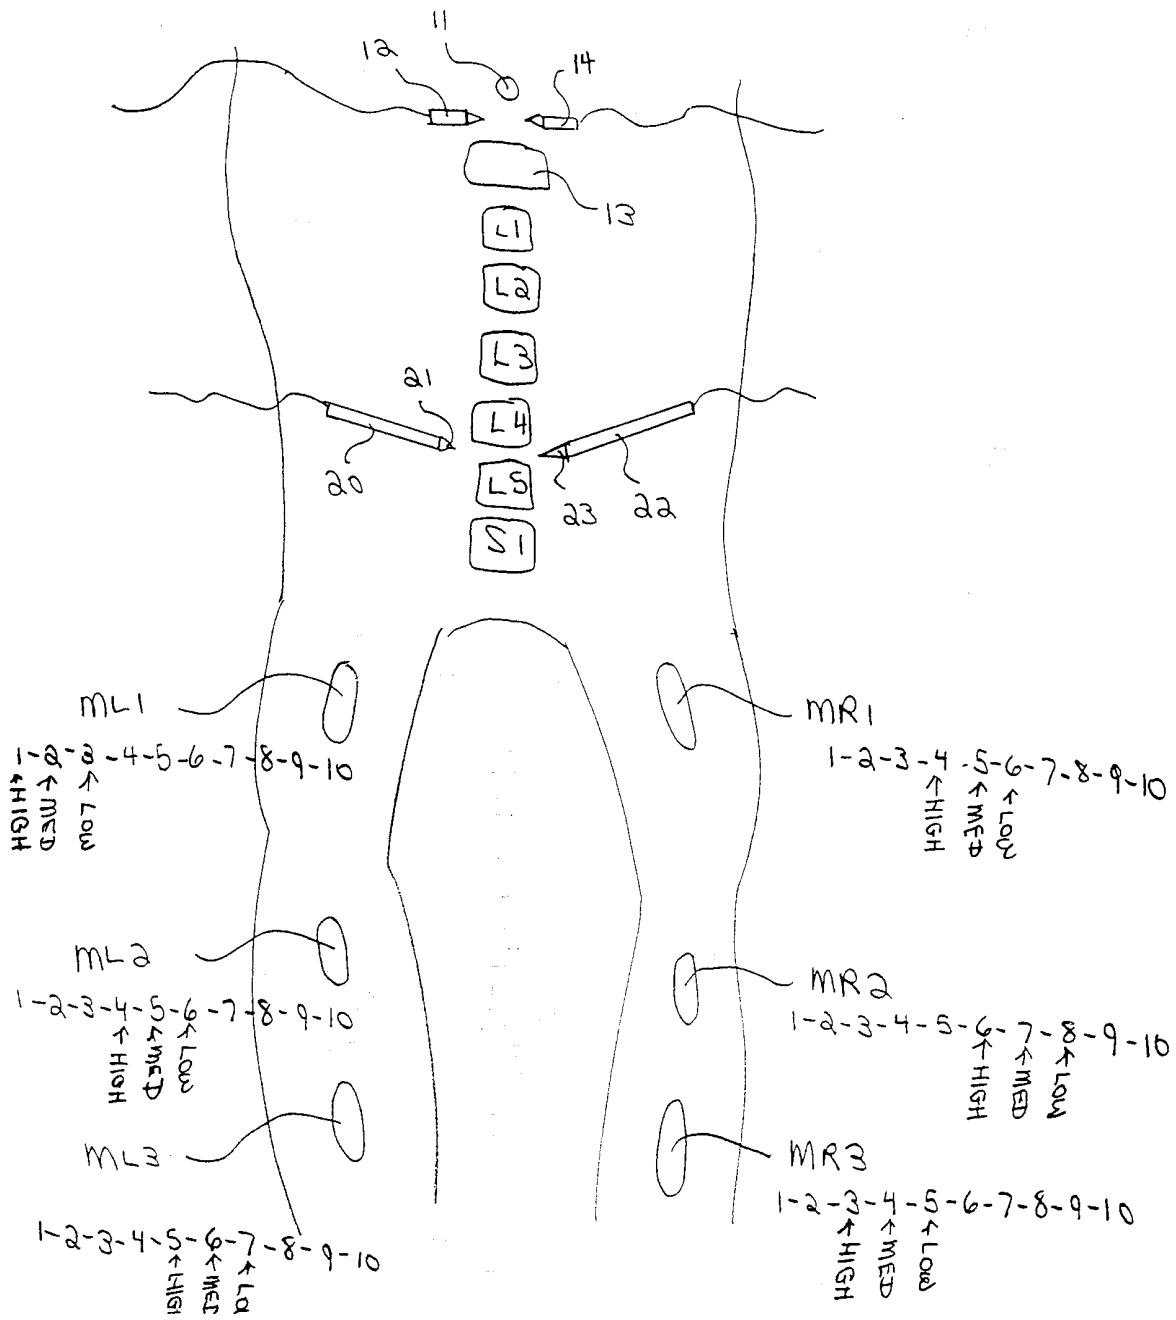 11
12
14
13
L1
L2
L3
21
L4
20
L5
23
22
S1
ML1
1-2-3-4-5-6-7-8-9-10
HIGH
MED
LOW
MR1
1-2-3-4-5-6-7-8-9-10
HIGH
MED
LOW
ML2
1-2-3-4-5-6-7-8-9-10
HIGH
MED
LOW
MR2
1-2-3-4-5-6-7-8-9-10
HIGH
MED
LOW
ML3
1-2-3-4-5-6-7-8-9-10
HIGH
MED
LO
MR3
1-2-3-4-5-6-7-8-9-10
HIGH
MED
LOW